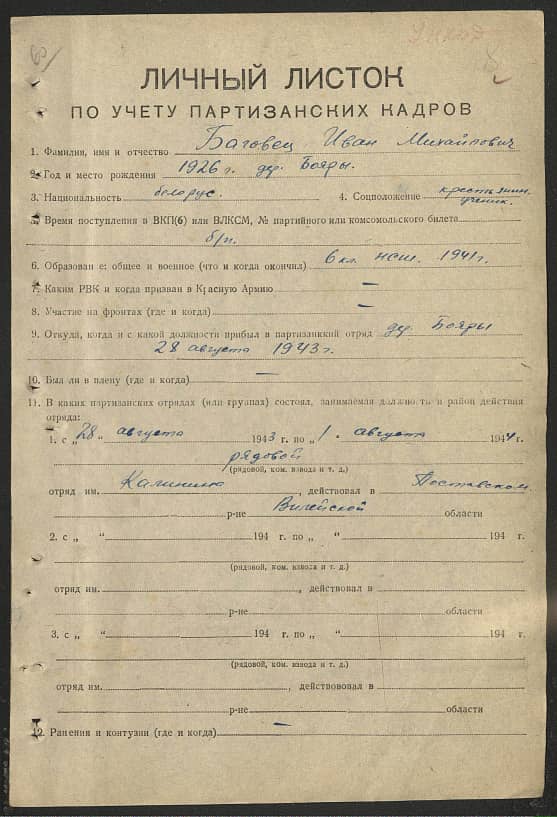 ЛИЧНЫЙ ЛИСТОК
ПО УЧЕТУ ПАРТИЗАНСКИХ КАДРОВ
1. Фамилия, имя и отчество Баговец Иван Михайлович
2. Год и место рождения 1926 г. дер. Бояры.
3. Национальность белорус. 4. Соцположение крестьянин.
ученик.
5. Время поступления в ВКП(б) или ВЛКСМ, № партийного или комсомольского билета
б/п.
6. Образован е: общее и военное (что и когда окончил) 6 кл. НСШ. 1941 г.
7. Каким РВК и когда призван в Красную Армию —
8. Участие на фронтах (где и когда) —
9. Откуда, когда и с какой должности прибыл в партизанский отряд дер. Бояры
28 августа 1943 г.
10. Был ли в плену (где и когда) —
11. В каких партизанских отрядах (или группах) состоял, занимаемая должность и район действия
отряда:
1. с „28“ августа 1943 г. по „1“ августа 1944 г.
рядовой
(рядовой, ком. взвода и т. д.)
отряд им. Калинина, действовал в Поставском
р-не Вилейской области
2. с „ “ 194 г. по „ “ 194 г.
(рядовой, ком. взвода и т. д.)
отряд им., действовал в
р-не области
3. с „ “ 194 г. по „ “ 194 г.
(рядовой, ком. взвода и т. д.)
отряд им., действововал в
р-не области
12. Ранения и контузии (где и когда) —